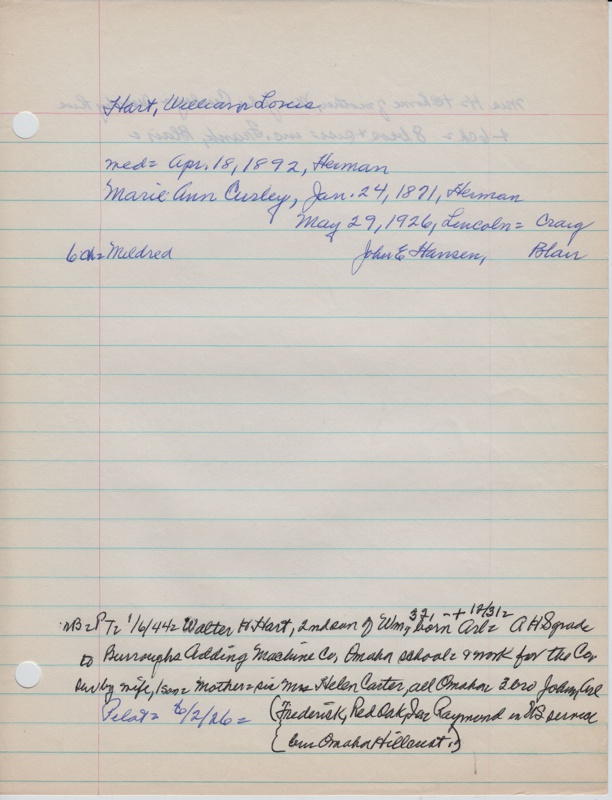 Hart, William Louis
med= Apr. 18, 1892, Herman
Marie Ann Curley, Jan. 24, 1871, Herman
May 29, 1926, Lincoln= Craig
6 ch= Mildred John E Hansen, Blair
37, -+ 12/31=
PT= 1/6/44= Walter H. Hart, 2nd son of Wm, born Arl= A H S grade
to Burroughs Adding Machine Co, Omaha school= & work for the Co
sur by wife, 1 son= Mother= sis Mrs Helen Carter, all Omaha= 2 bro John, Arl
Pilot= 6/2/26= (Frederick, Red Oak, Ia= Raymond in US service
(bur Omaha Hillcrest.)